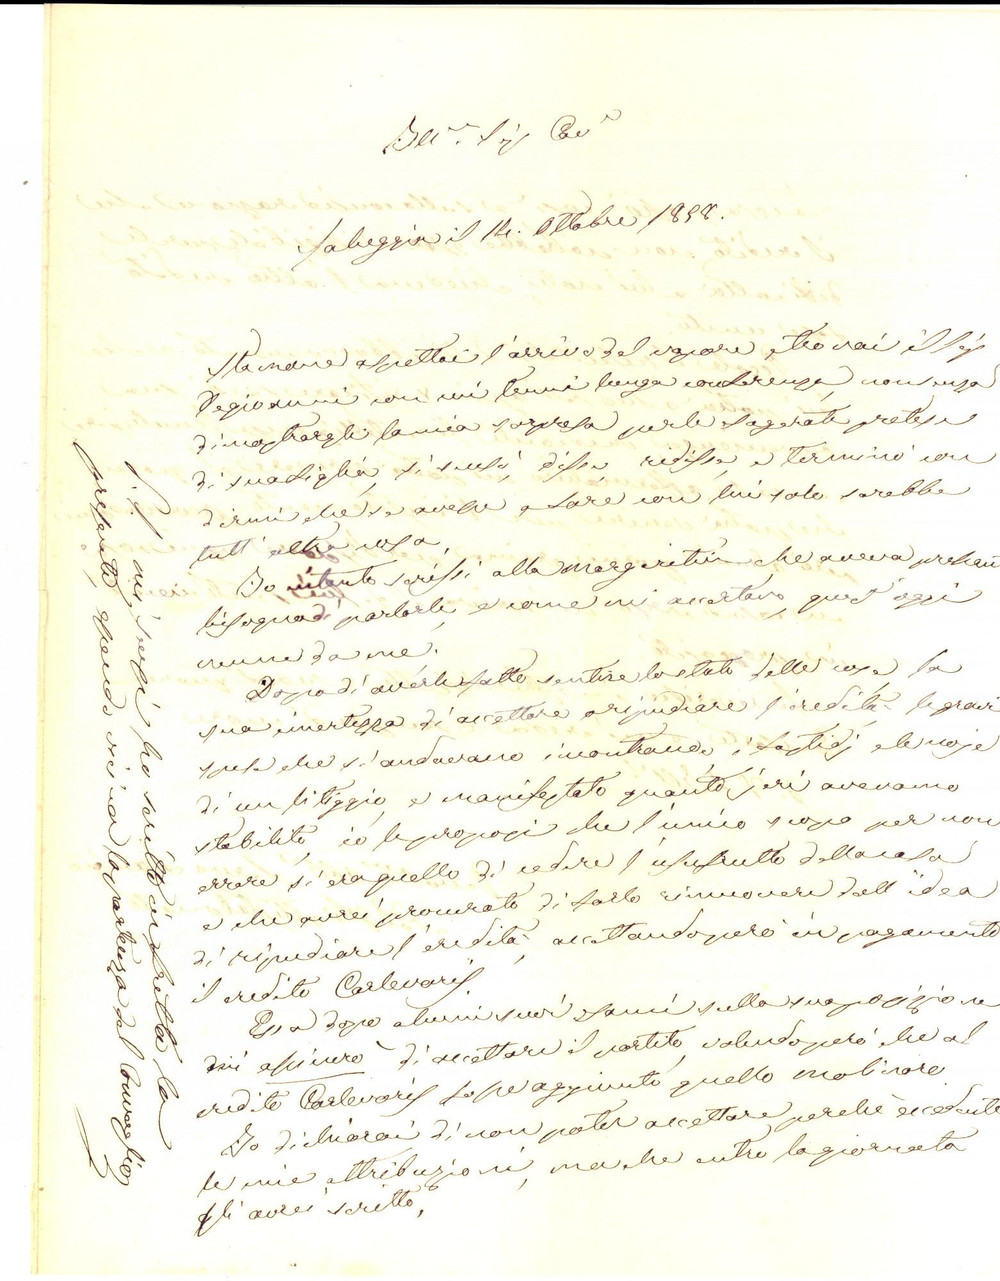 Ill.mo Sig. Cav.r
il 14. Ottobre 1858.
Stamane aspettai l'arrivo del vapore, e trovai il Sig.
Pegionnini con cui tenni lunga conferenza, non senza
dimostrargli la mia sorpresa per le esagerate pretese
di sua figlia, si scusò, disse ridisse, e terminò con
dirmi che se avesse a fare con lui solo sarebbe
tutt'altra cosa.
Io intanto scrissi alla Margaritin che aveva pressanti
bisogno di parlarle, e come mi accertavo quest'oggi
venne da me.
Dopo di averle fatto sentire lo stato delle cose la
sua incertezza di accettare o ripudiare l'eredità, le gravi
spese che si andavano incontrando i fastidj e le noje
di un litiggio, e manifestato quanto jeri avevamo
stabilito, io le proposi che l'unico scopo per non
errare si era quello di cedere l'usufrutto della casa
e che avrei procurato di farlo rimuovere dall'idea
di ripudiare l'eredità, accettando però in pagamento
il credito Carlevaris.
Essa dopo alcuni suoi esami sulla sua posizione
di accettare il partito, volendo però che al
credito Carlevaris fosse aggiunto quello Molinare.
Io dichiarai di non poter accettare perchè eccedente
le mie attribuzioni, ma che entro la giornata
gli avrei scritto.
P.S. mi scusi ho scritto in fretta la
presente, essendo vicina la partenza del Convoglio